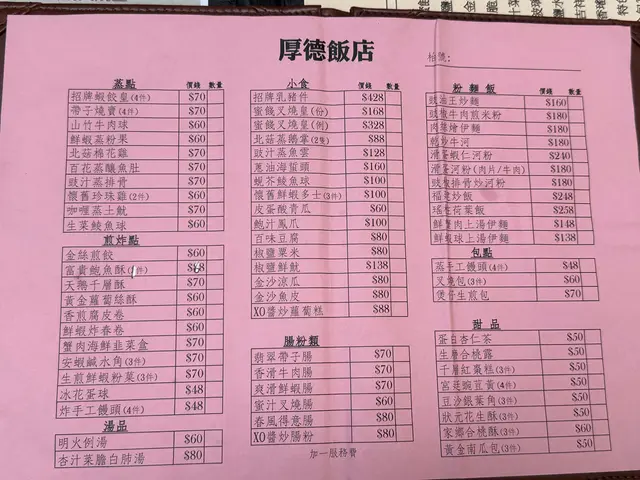 厚德飯店
枱號:
蒸點 價錢 數量
招牌蝦餃皇(4件) $70
帶子燒賣(4件) $70
山竹牛肉球 $60
鮮蝦蒸粉果 $60
北菇棉花雞 $70
百花蒸釀魚肚 $70
豉汁蒸排骨 $70
懷舊珍珠雞(2件) $60
咖喱蒸土魷 $70
生菜鯪魚球 $60
煎炸點
金絲煎餃 $60
富貴鮑魚酥
天鵝千層酥 $70
黃金蘿蔔絲酥 $60
香煎腐皮卷 $60
鮮蝦炸春卷 $60
蟹肉海鮮韭菜盒 $70
安蝦鹹水角(3件) $70
生煎鮮蝦粉菜(3件) $70
冰花蛋球 $48
炸手工饅頭(4件) $48
湯品
明火例湯 $60
杏汁菜膽白肺湯 $80
小食 價錢 數量
招牌乳豬件 $428
蜜餞叉燒皇(份) $168
蜜餞叉燒皇(例) $328
北菇蒸鵝掌(2隻) $88
豉汁蒸魚雲 $128
蔥油海蜇頭 $160
蜆芥鯪魚球 $100
懷舊鮮蝦多士(3件) $100
皮蛋酸青瓜 $60
鮑汁鳳爪 $100
百味豆腐 $80
椒鹽粟米 $80
椒鹽鮮魷 $138
金沙涼瓜 $80
金沙魚皮 $80
XO醬炒蘿蔔糕 $88
腸粉類
翡翠帶子腸 $70
香滑牛肉腸 $70
爽滑鮮蝦腸 $70
蜜汁叉燒腸 $60
春風得意腸 $80
XO醬炒腸粉 $80
加一服務費
粉麵飯 價錢 數量
豉油王炒麵 $160
豉椒牛肉煎米粉 $180
肉絲燴伊麵 $180
乾炒牛河 $180
滑蛋蝦仁河粉 $240
滑蛋河粉(肉片/牛肉) $180
豉椒排骨炒河粉 $180
福建炒飯 $248
瑤柱荷葉飯 $258
鮮蟹肉上湯伊麵 $148
鮮蝦球上湯伊麵 $138
包點
蒸手工饅頭(4件) $48
叉燒包(3件) $60
煲仔生煎包 $70
甜品
蛋白杏仁茶 $50
生磨合桃露 $50
千層紅棗糕(3件) $50
宮廷豌荳黃(4件) $50
豆沙銀葉角(3件) $50
狀元花生酥(3件) $50
家鄉合桃酥(3件) $60
黃金南瓜包(3件) $50